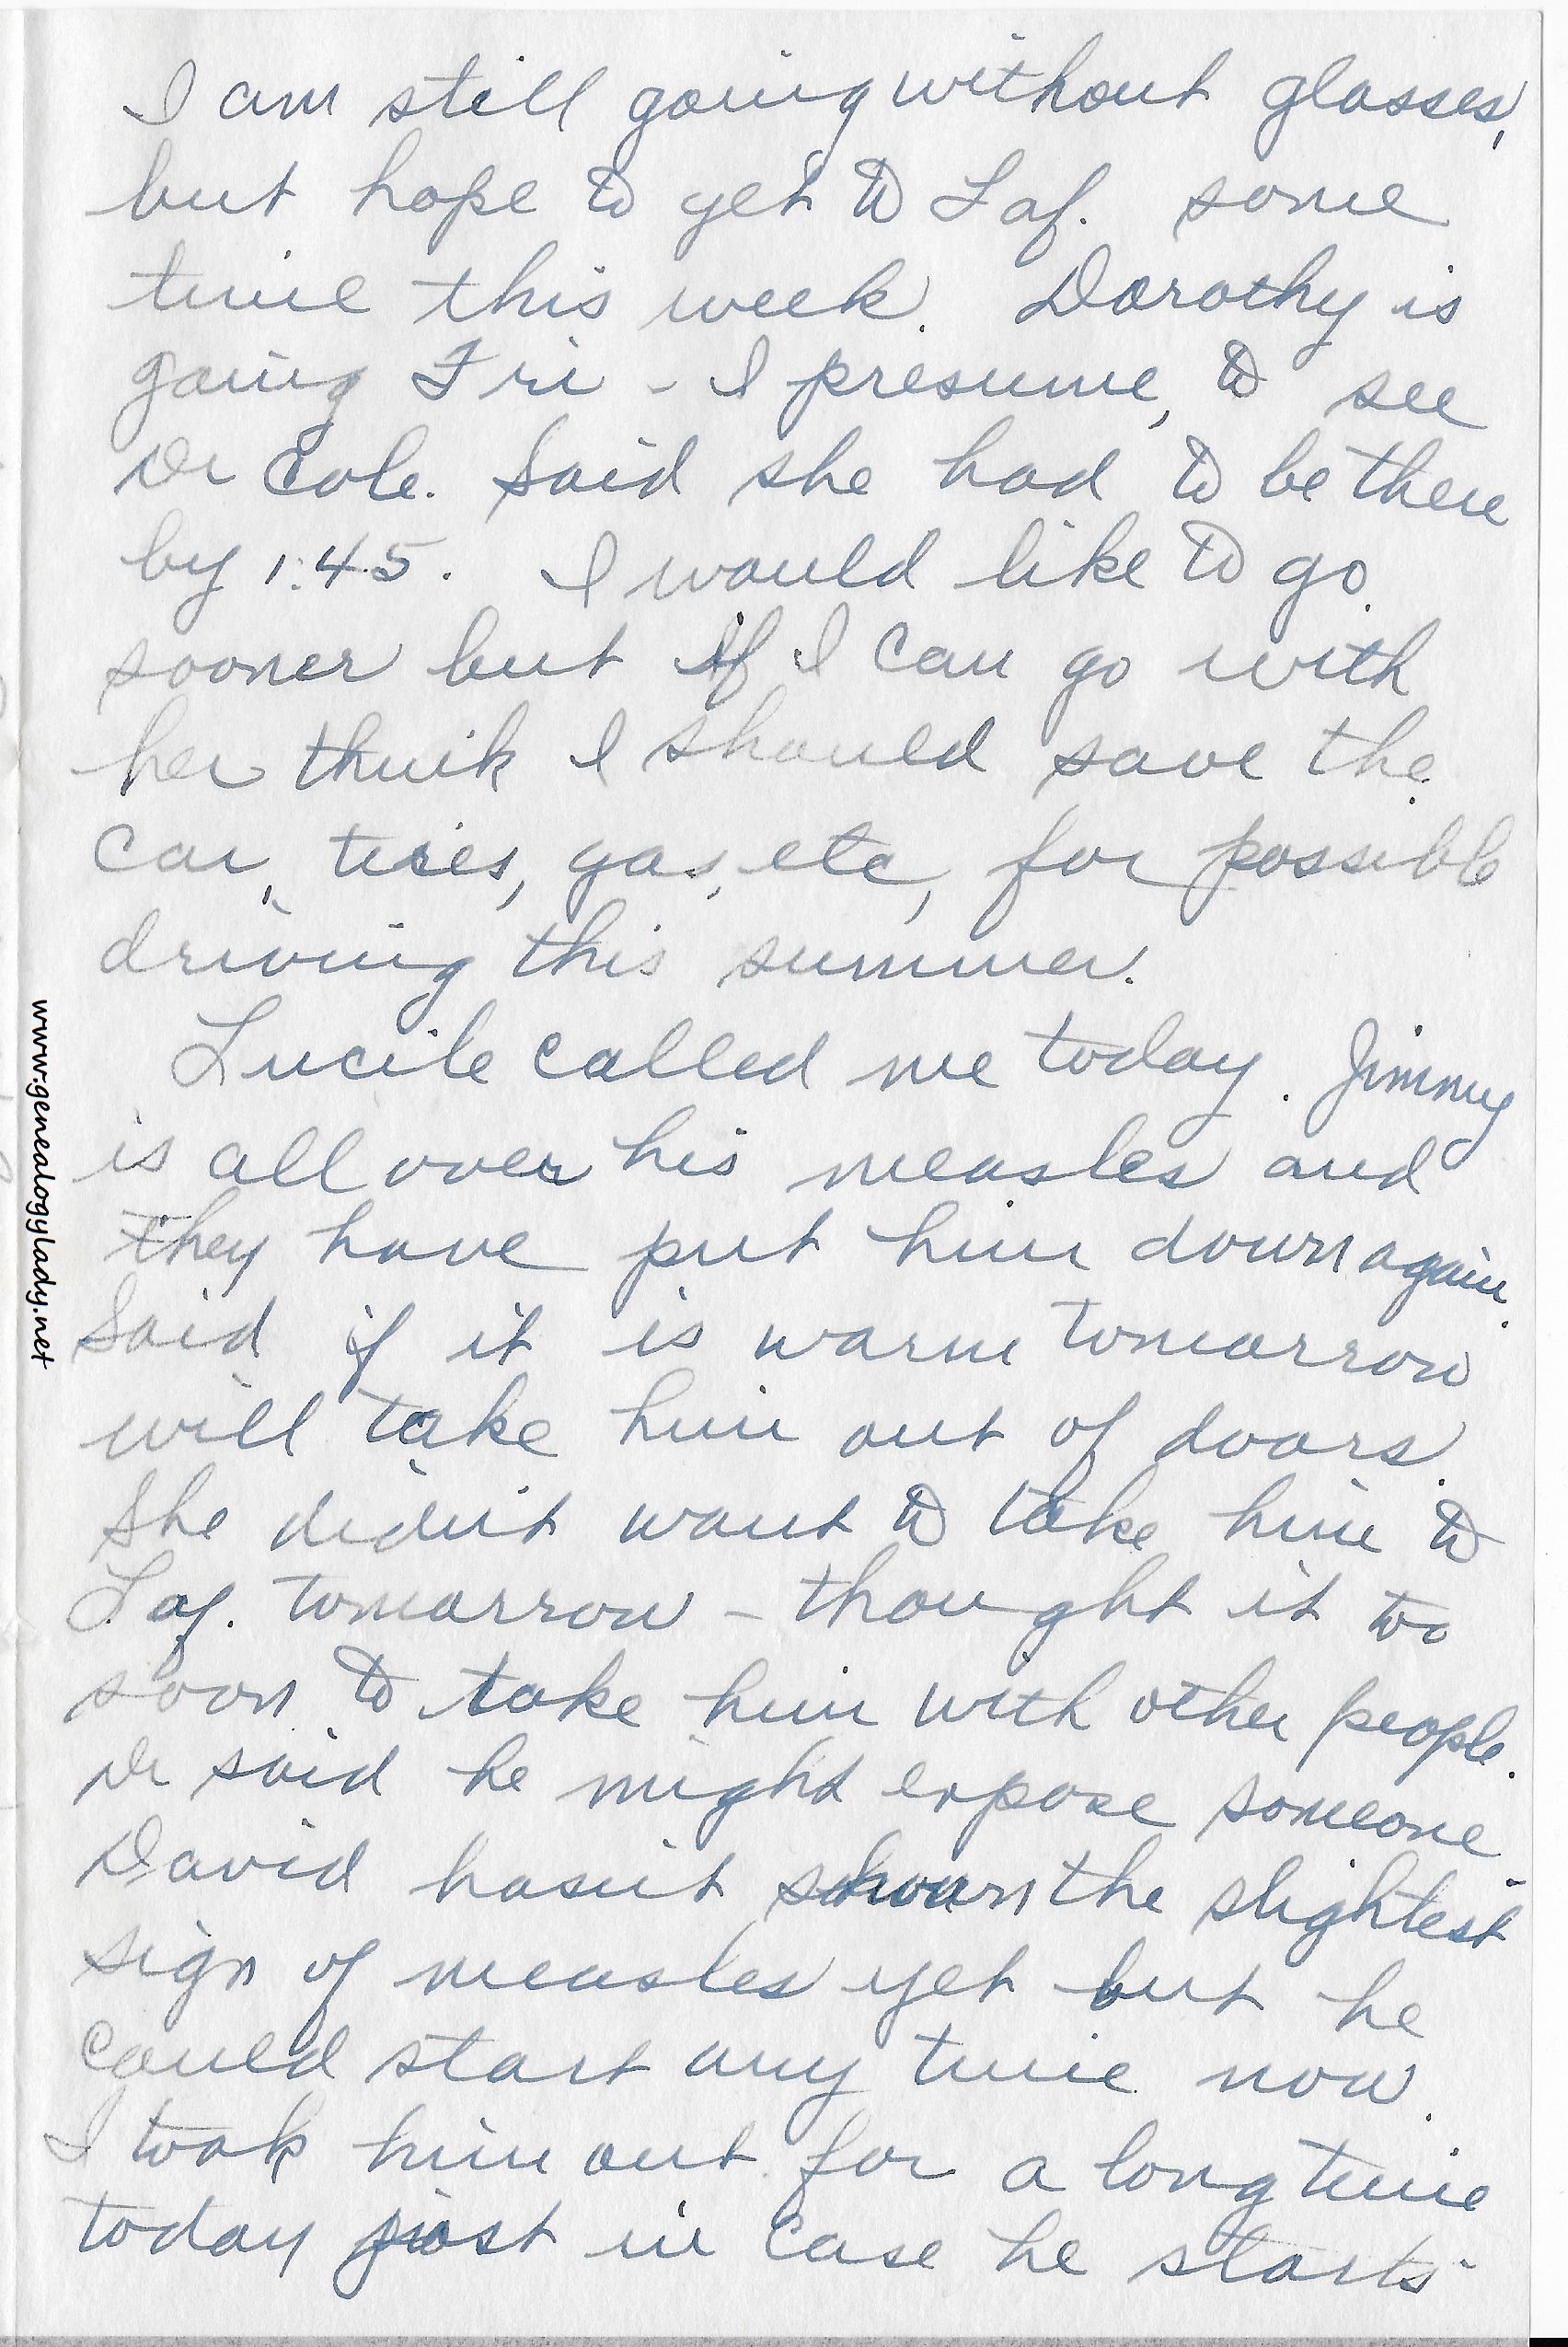 I am still going without glasses,
but hope to get to Laf. some
time this week. Dorothy is
going Fri - I presume, to see
Dr Cole. Said she had to be there
by 1:45. I would like to go
sooner but if I can go with
her think I should save the
car, tires, gas, etc, for possible
driving this summer.
Lucile called me today. Jimmy
is all over his measles and
they have put him down again.
Said if it is warm tomorrow
will take him out of doors.
She didn't want to take him to
Laf. tomorrow - thought it too
soon to take him with other people.
Dr said he might expose someone.
David hasn't shown the slightest
sign of measles yet but he
could start any time now.
I took him out for a long time
today just in case he starts
www.genealogylady.net